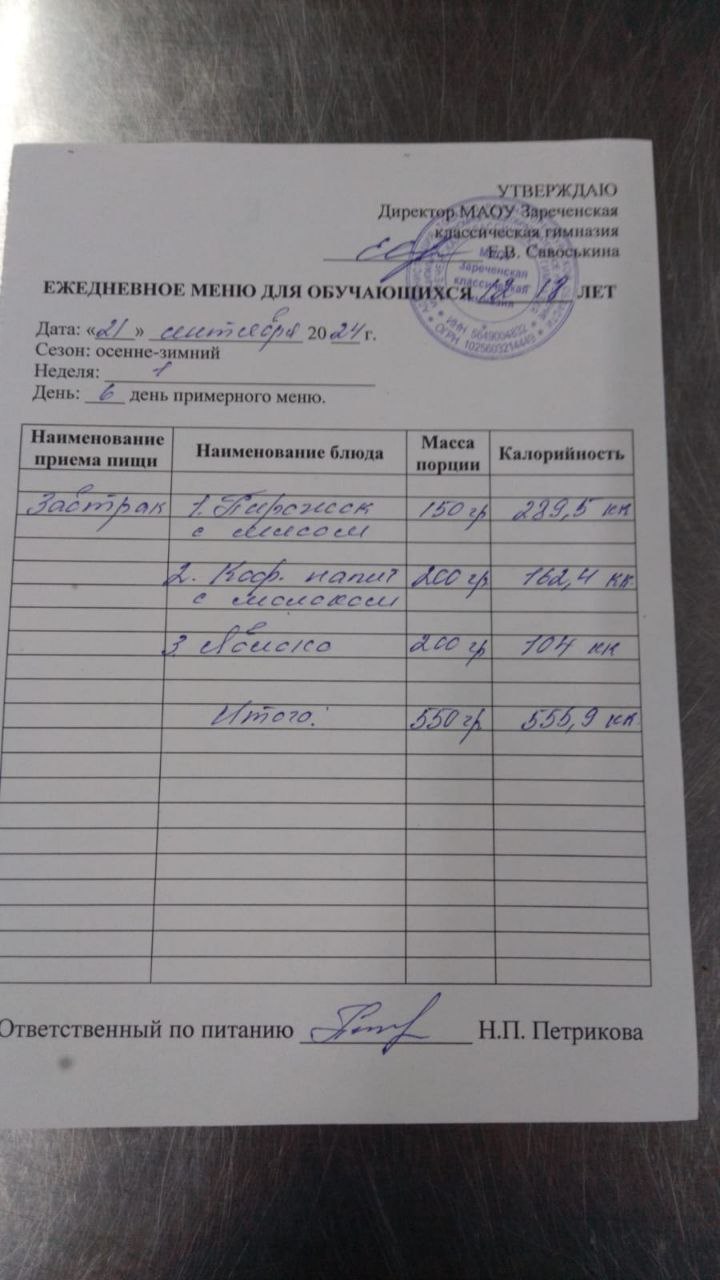 УТВЕРЖДАЮ
Директор МАОУ Зареченская
классическая гимназия
Е.В. Савоськина
Зареченская
классическая
гимназия
ИНН 5649004832
ОГРН 1025603214449
ЕЖЕДНЕВНОЕ МЕНЮ ДЛЯ ОБУЧАЮЩИХСЯ 12 18 ЛЕТ
Дата: «21» сентября 2024 г.
Сезон: осенне-зимний
Неделя: 1
День: 6 день примерного меню.
Наименование приема пищи Наименование блюда Масса порции Калорийность
Завтрак 1. Пирожок 150 гр 289,5 кк
с мясом
2. Коф. напит 200 гр 162,4 кк
с молоком
3 Яблоко 200 гр 104 кк
Итого: 550 гр 555,9 кк
Ответственный по питанию Н.П. Петрикова